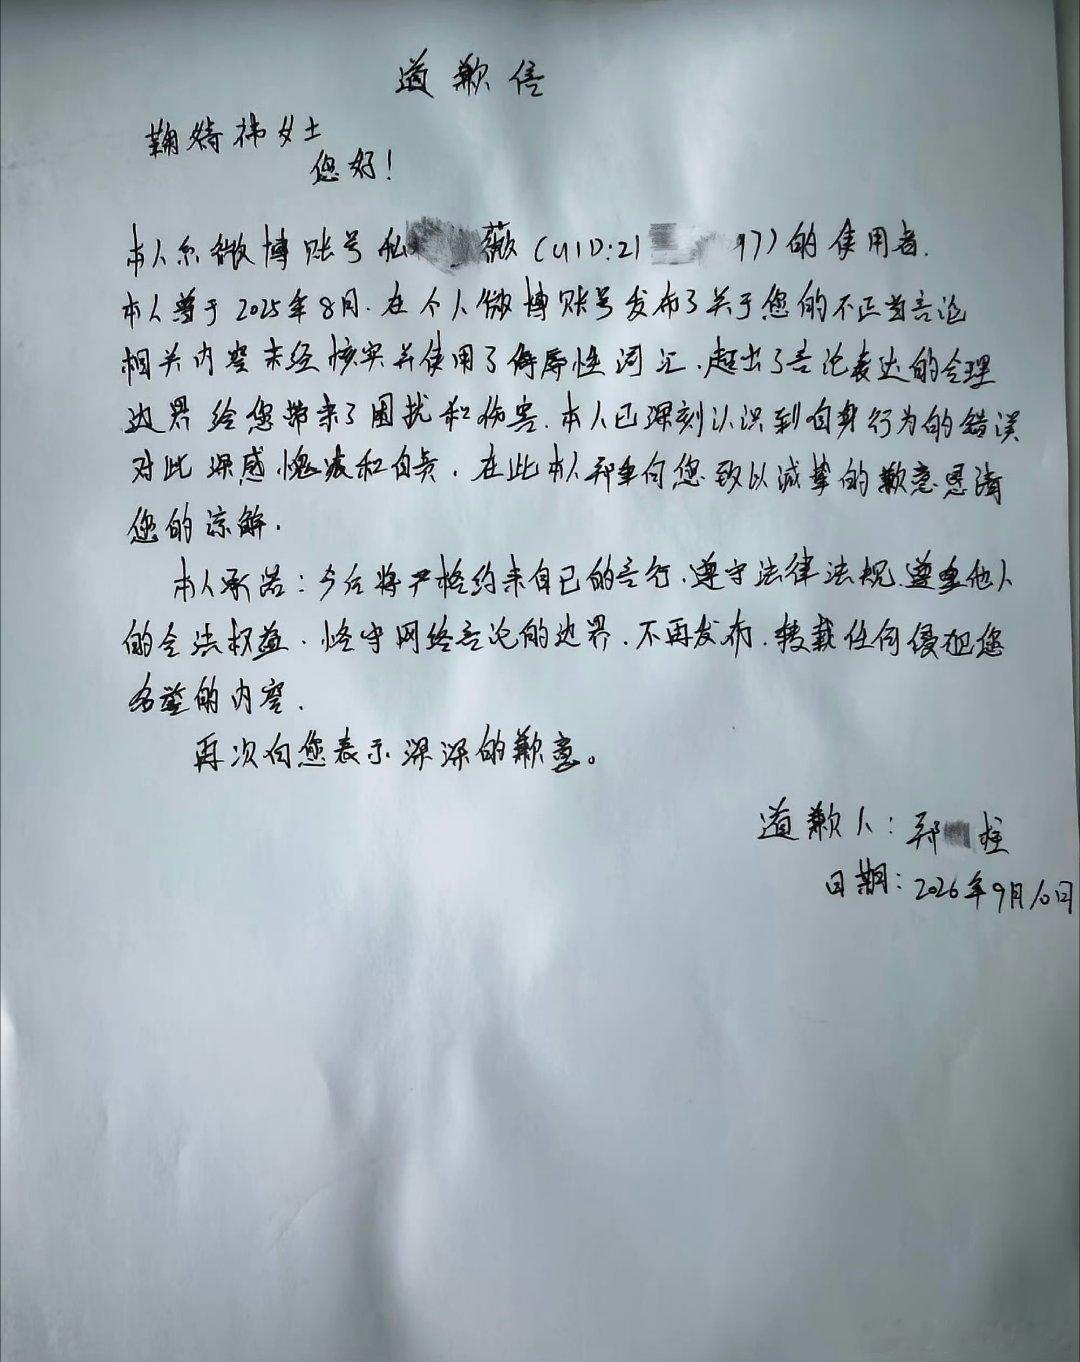 道歉信
鞠婧祎女士
您好!
本人系微博账号私 薇(UID:21 97)的使用者.
本人曾于2025年8月.在个人微博账号发布了关于您的不正当言论
相关内容未经核实并使用了侮辱性词汇.超出了言论表达的合理
边界给您带来了困扰和伤害.本人已深刻认识到自身行为的错误
对此深感愧疚和自责.在此本人郑重向您致以诚挚的歉意恳请
您的谅解.
本人承诺:今后将严格约束自己的言行.遵守法律法规.尊重他人
的合法权益.恪守网络言论的边界.不再发布.转载任何侵犯您
名誉的内容.
再次向您表示深深的歉意。
道歉人:郑 柱
日期:2026年9月10日